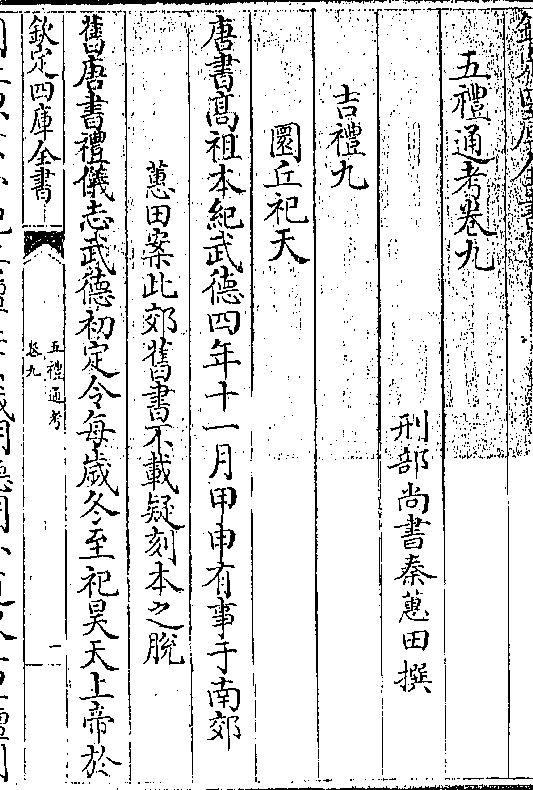 欽定四庫全書
五禮通考卷九
刑部尚書秦蕙田撰
吉禮九
圜丘祀天
唐書髙祖本紀武德四年十一月甲申有事于南郊
蕙田案此郊舊書不載疑刻本之脫
舊唐書禮儀志武德初定令每歲冬至祀昊天上帝於
欽定四庫全書
五禮通考
卷九
一